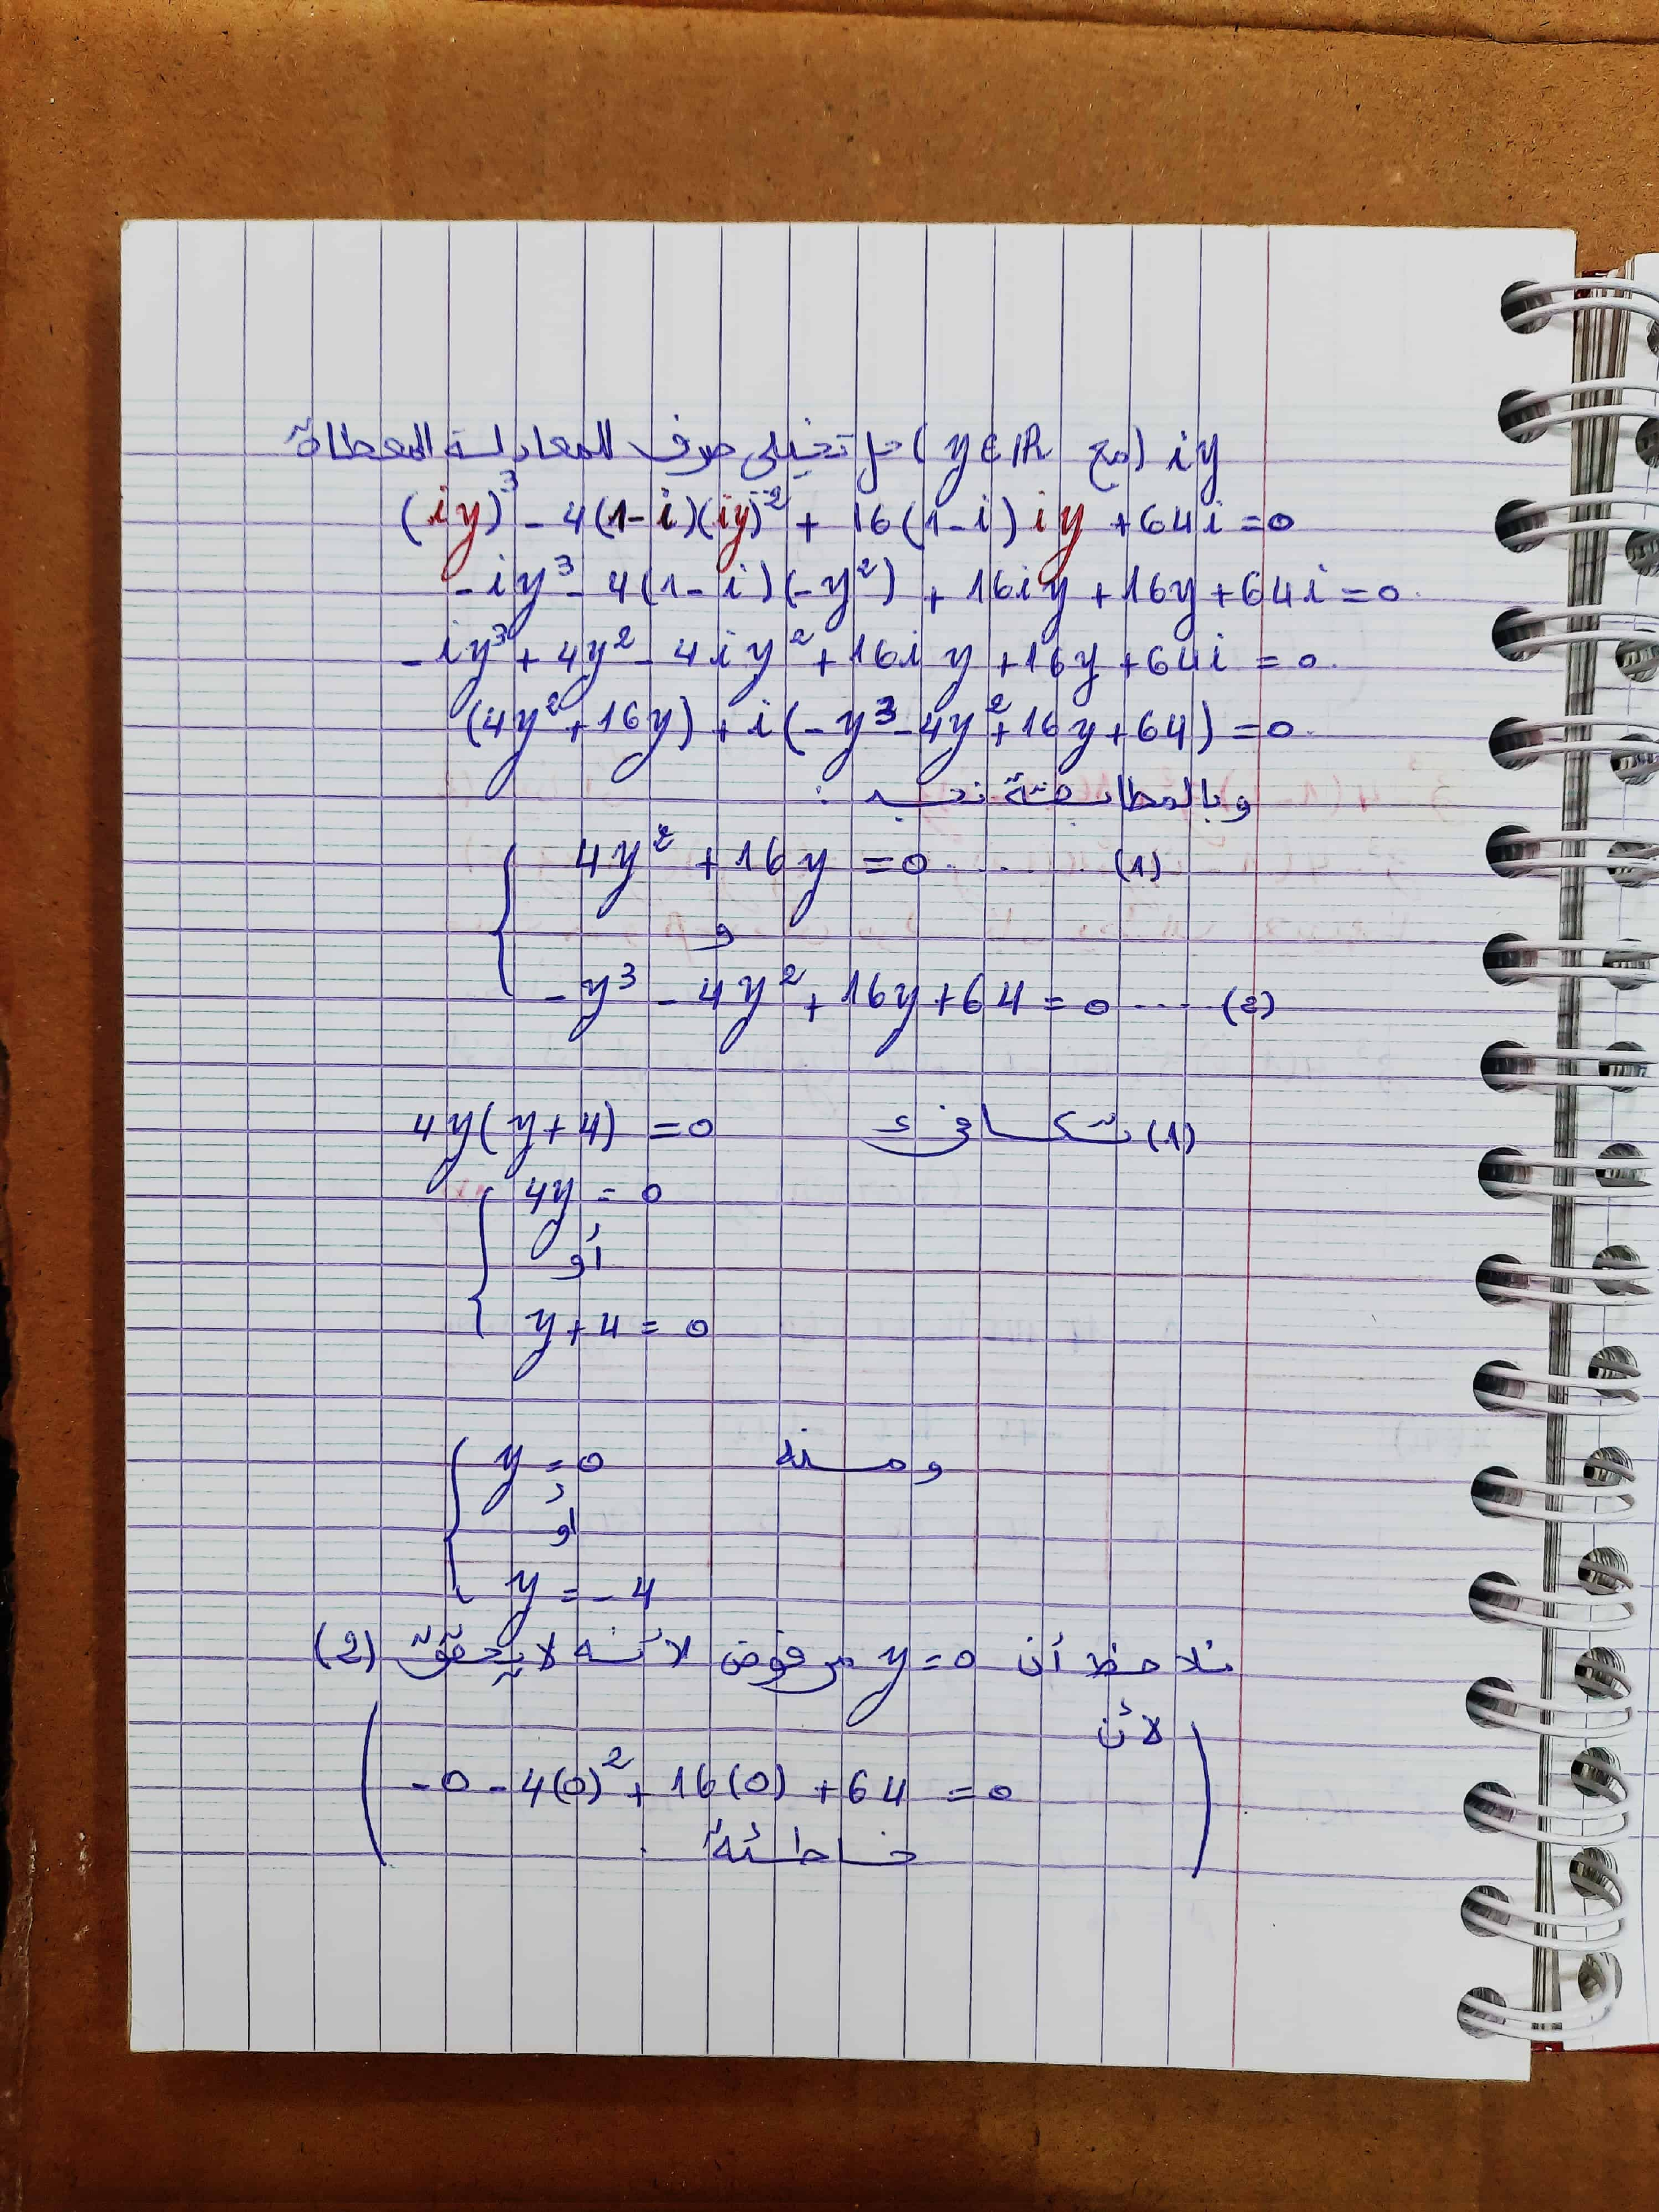 iy (مع y∈ℝ) حل تخيلي صرف للمعادلة المعطاة
(iy)³ - 4(1-i)(iy)² + 16(1-i)iy + 64i = 0
-iy³ - 4(1-i)(-y²) + 16iy + 16y + 64i = 0.
-iy³ + 4y² - 4iy² + 16iy + 16y + 64i = 0.
(4y² + 16y) + i(-y³ - 4y² + 16y + 64) = 0.
وبالمطابقة نجد :
4y² + 16y = 0 ...... (1)
و
-y³ - 4y² + 16y + 64 = 0 .... (2)
(1) تكافىء 4y(y+4) = 0
4y = 0
أو
y + 4 = 0
ومنه y = 0
أو
y = -4
نلاحظ أن y = 0 مرفوض لأنه لا يحقق (2)
لأن
-0 - 4(0)² + 16(0) + 64 = 0
خاطئة.